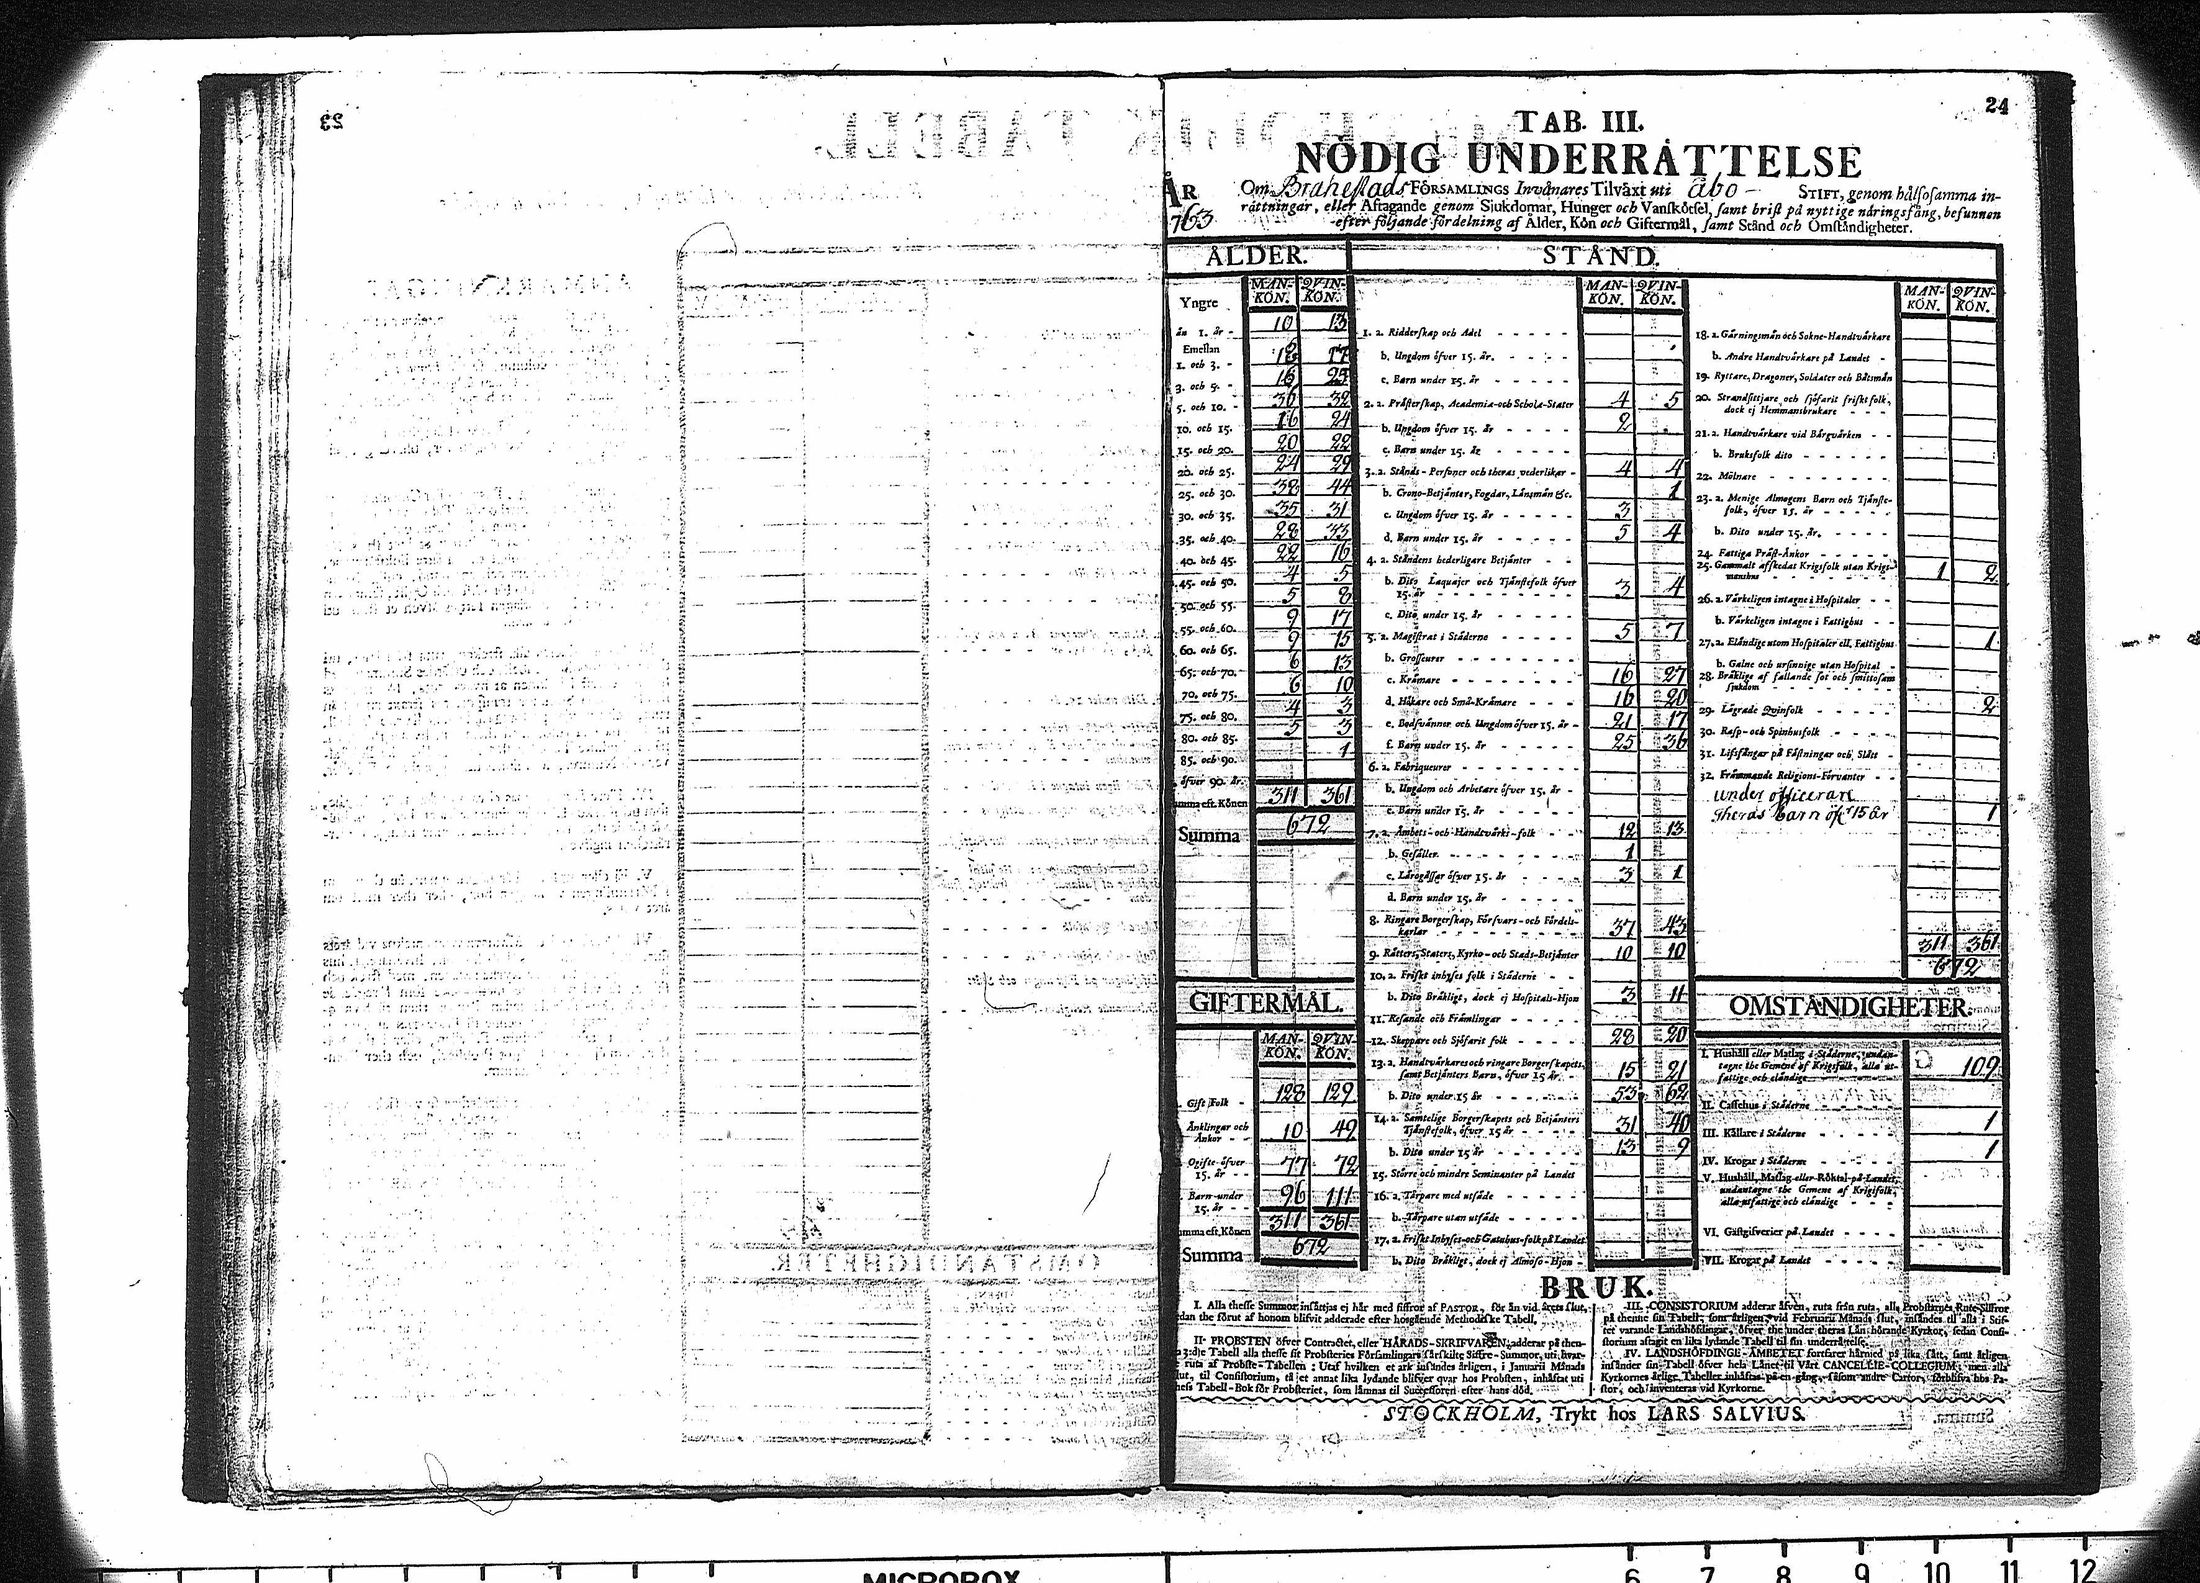 24
TAB. III.
NÖDIG UNDERRÄTTELSE
ÅR 1763
Om Brahestads FÖRSAMLINGS Invånares Tilväxt uti Åbo STIFT, genom hälsosamma in-
rättningar, eller Aftagande genom Sjukdomar, Hunger och Vanskötsel, samt brist på nyttige näringsfång, befunnen
efter följande fördelning af Ålder, Kön och Giftermål, samt Stånd och Omständigheter.
ÅLDER.
MAN-KÖN. QVIN-KÖN.
Yngre
än 1. år - 10 13
Emellan
1. och 3. - 17
3. och 5. - 16 25
5. och 10. - 36 32
10. och 15. 16 24
15. och 20. 20 22
20. och 25. 24 29
25. och 30. 38 44
30. och 35. 35 31
35. och 40. 28 33
40. och 45. 22 16
45. och 50. 4 5
50. och 55. 5 8
55. och 60. 9 17
60. och 65. 9 15
65. och 70. 6 13
70. och 75. 6 10
75. och 80. 4 3
80. och 85. 5 3
85. och 90. 1
öfver 90. år.
umma eft. Könen 311 361
Summa 672
GIFTERMÅL.
MAN-KÖN. QVIN-KÖN.
Gift Folk - 128 129
Änklingar och
Änkor - - 10 49
Ogifte öfver
15. år - - 77 72
Barn under
15. år - - 96 111
umma eft. Könen 311 361
Summa 672
STÅND.
MAN-KÖN. QVIN-KÖN.
1. a. Ridderskap och Adel
b. Ungdom öfver 15. år.
c. Barn under 15. år
2. a. Prästerskap, Academiæ- och Scholæ-Stater 4 5
b. Ungdom öfver 15. år 2
c. Barn under 15. år
3. a. Stånds-Personer och theras vederlikar 4 4
b. Crono-Betjänter, Fogdar, Länsmän &c. 1
c. Ungdom öfver 15. år 3
d. Barn under 15. år 5 4
4. a. Ståndens hederligare Betjänter
b. Dito Laquajer och Tjänstefolk öfver
15. år 3 4
c. Dito under 15. år
5. a. Magistrat i Städerne 5 7
b. Grosseurer
c. Krämare 16 27
d. Hökare och Små-Krämare 16 20
e. Bodsvänner och Ungdom öfver 15. år 21 17
f. Barn under 15. år 25 36
6. a. Fabriqueurer
b. Ungdom och Arbetare öfver 15. år
c. Barn under 15. år
7. a. Ämbets- och Handtvärks-folk 12 13
b. Gesäller 1
c. Lärogåssar öfver 15. år 3 1
d. Barn under 15. år
8. Ringare Borgerskap, Försvars- och Fördels-
karlar 37 43
9. Rätters, Staters, Kyrko- och Stads-Betjänter 10 10
10. a. Friskt inhyses folk i Städerne
b. Dito Bräkligt, dock ej Hospitals-Hjon 3 11
11. Resande och Främlingar
12. Skeppare och Sjöfarit folk 28 20
13. a. Handtvärkares och ringare Borgerskapets,
samt Betjänters Barn, öfver 15 år. 15 21
b. Dito under 15 år 53 62
14. a. Samtelige Borgerskapets och Betjänters
Tjänstefolk, öfver 15 år 31 40
b. Dito under 15 år 13 9
15. Större och mindre Seminanter på Landet
16. a. Torpare med utsäde
b. Torpare utan utsäde
17. a. Friskt Inhyses- och Gatuhus-folk på Landet
b. Dito Bräkligt, dock ej Almoso-Hjon
MAN-KÖN. QVIN-KÖN.
18. a. Gärningsmän och Sokne-Handtvärkare
b. Andre Handtvärkare på Landet
19. Ryttare, Dragoner, Soldater och Båtsmän
20. Strandsittjare och sjöfarit friskt folk,
dock ej Hemmansbrukare
21. a. Handtvärkare vid Bärgvärken
b. Bruksfolk dito
22. Mölnare
23. a. Menige Almogens Barn och Tjänste-
folk, öfver 15. år
b. Dito under 15. år.
24. Fattiga Präst-Änkor
25. Gammalt afskedat Krigsfolk utan Krigs-
manshus 1 2
26. a. Värkeligen intagne i Hospitaler
b. Värkeligen intagne i Fattighus
27. a. Eländige utom Hospitaler ell. Fattighus 1
b. Galne och ursinnige utan Hospital
28. Bräklige af fallande sot och smittosam
sjukdom
29. Lägrade Qvinfolk 2
30. Rasp- och Spinhusfolk
31. Lifsfångar på Fästningar och Slått
32. Främmande Religions-Förvanter
under officerare
theras barn öfr 15 år 1
311 361
672
OMSTÄNDIGHETER.
I. Hushåll eller Matlag i Städerne, undan-
tagne the Gemene af Krigsfolk, alla ut-
fattige och eländige 109
II. Caffehus i Städerne
III. Källare i Städerne 1
IV. Krogar i Städerne 1
V. Hushåll, Matlag eller Röktal på Landet,
undantagne the Gemene af Krigsfolk,
alla utfattige och eländige
VI. Gästgifverier på Landet
VII. Krogar på Landet
BRUK.
I. Alla thesse Summor insättjas ej här med siffror af PASTOR, för än vid årets slut,
edan the förut af honom blifvit adderade efter hosgående Methodiske Tabell.
II. PROBSTEN öfver Contractet, eller HÄRADS-SKRIFVAREN, adderar på then-
a 3:dje Tabell alla thesse sit Probsteries Församlingars särskilte Siffre-Summor, uti hvar-
e ruta af Probste-Tabellen: Utaf hvilken et ark insändes årligen, i Januarii Månads
lut, til Consistorium, tå et annat lika lydande blifver qvar hos Probsten, inhäftat uti
hess Tabell-Bok för Probsteriet, som lämnas til Successoren efter hans död.
III. CONSISTORIUM adderar äfven, ruta från ruta, alla Probstarnes Rute-Siffror
på thenne sin Tabell, som årligen, vid Februarii Månads slut, insändes til alla i Stif-
tet varande Landshöfdingar, öfver the under theras Län hörande Kyrkor, sedan Consi-
storium aftagit en lika lydande Tabell til sin underrättelse.
IV. LANDSHÖFDINGE-ÄMBETET fortfarer härmed på lika sätt, samt årligen
insänder sin Tabell öfver hela Länet til Vårt CANCELLIE-COLLEGIUM; men alla
Kyrkornes årlige Tabeller inhäftas på en gång, såsom andre Cartor, förblifva hos Pa-
stor, och inventeras vid Kyrkorne.
STOCKHOLM, Trykt hos LARS SALVIUS.
23
MICROBOX
6 7 8 9 10 11 12